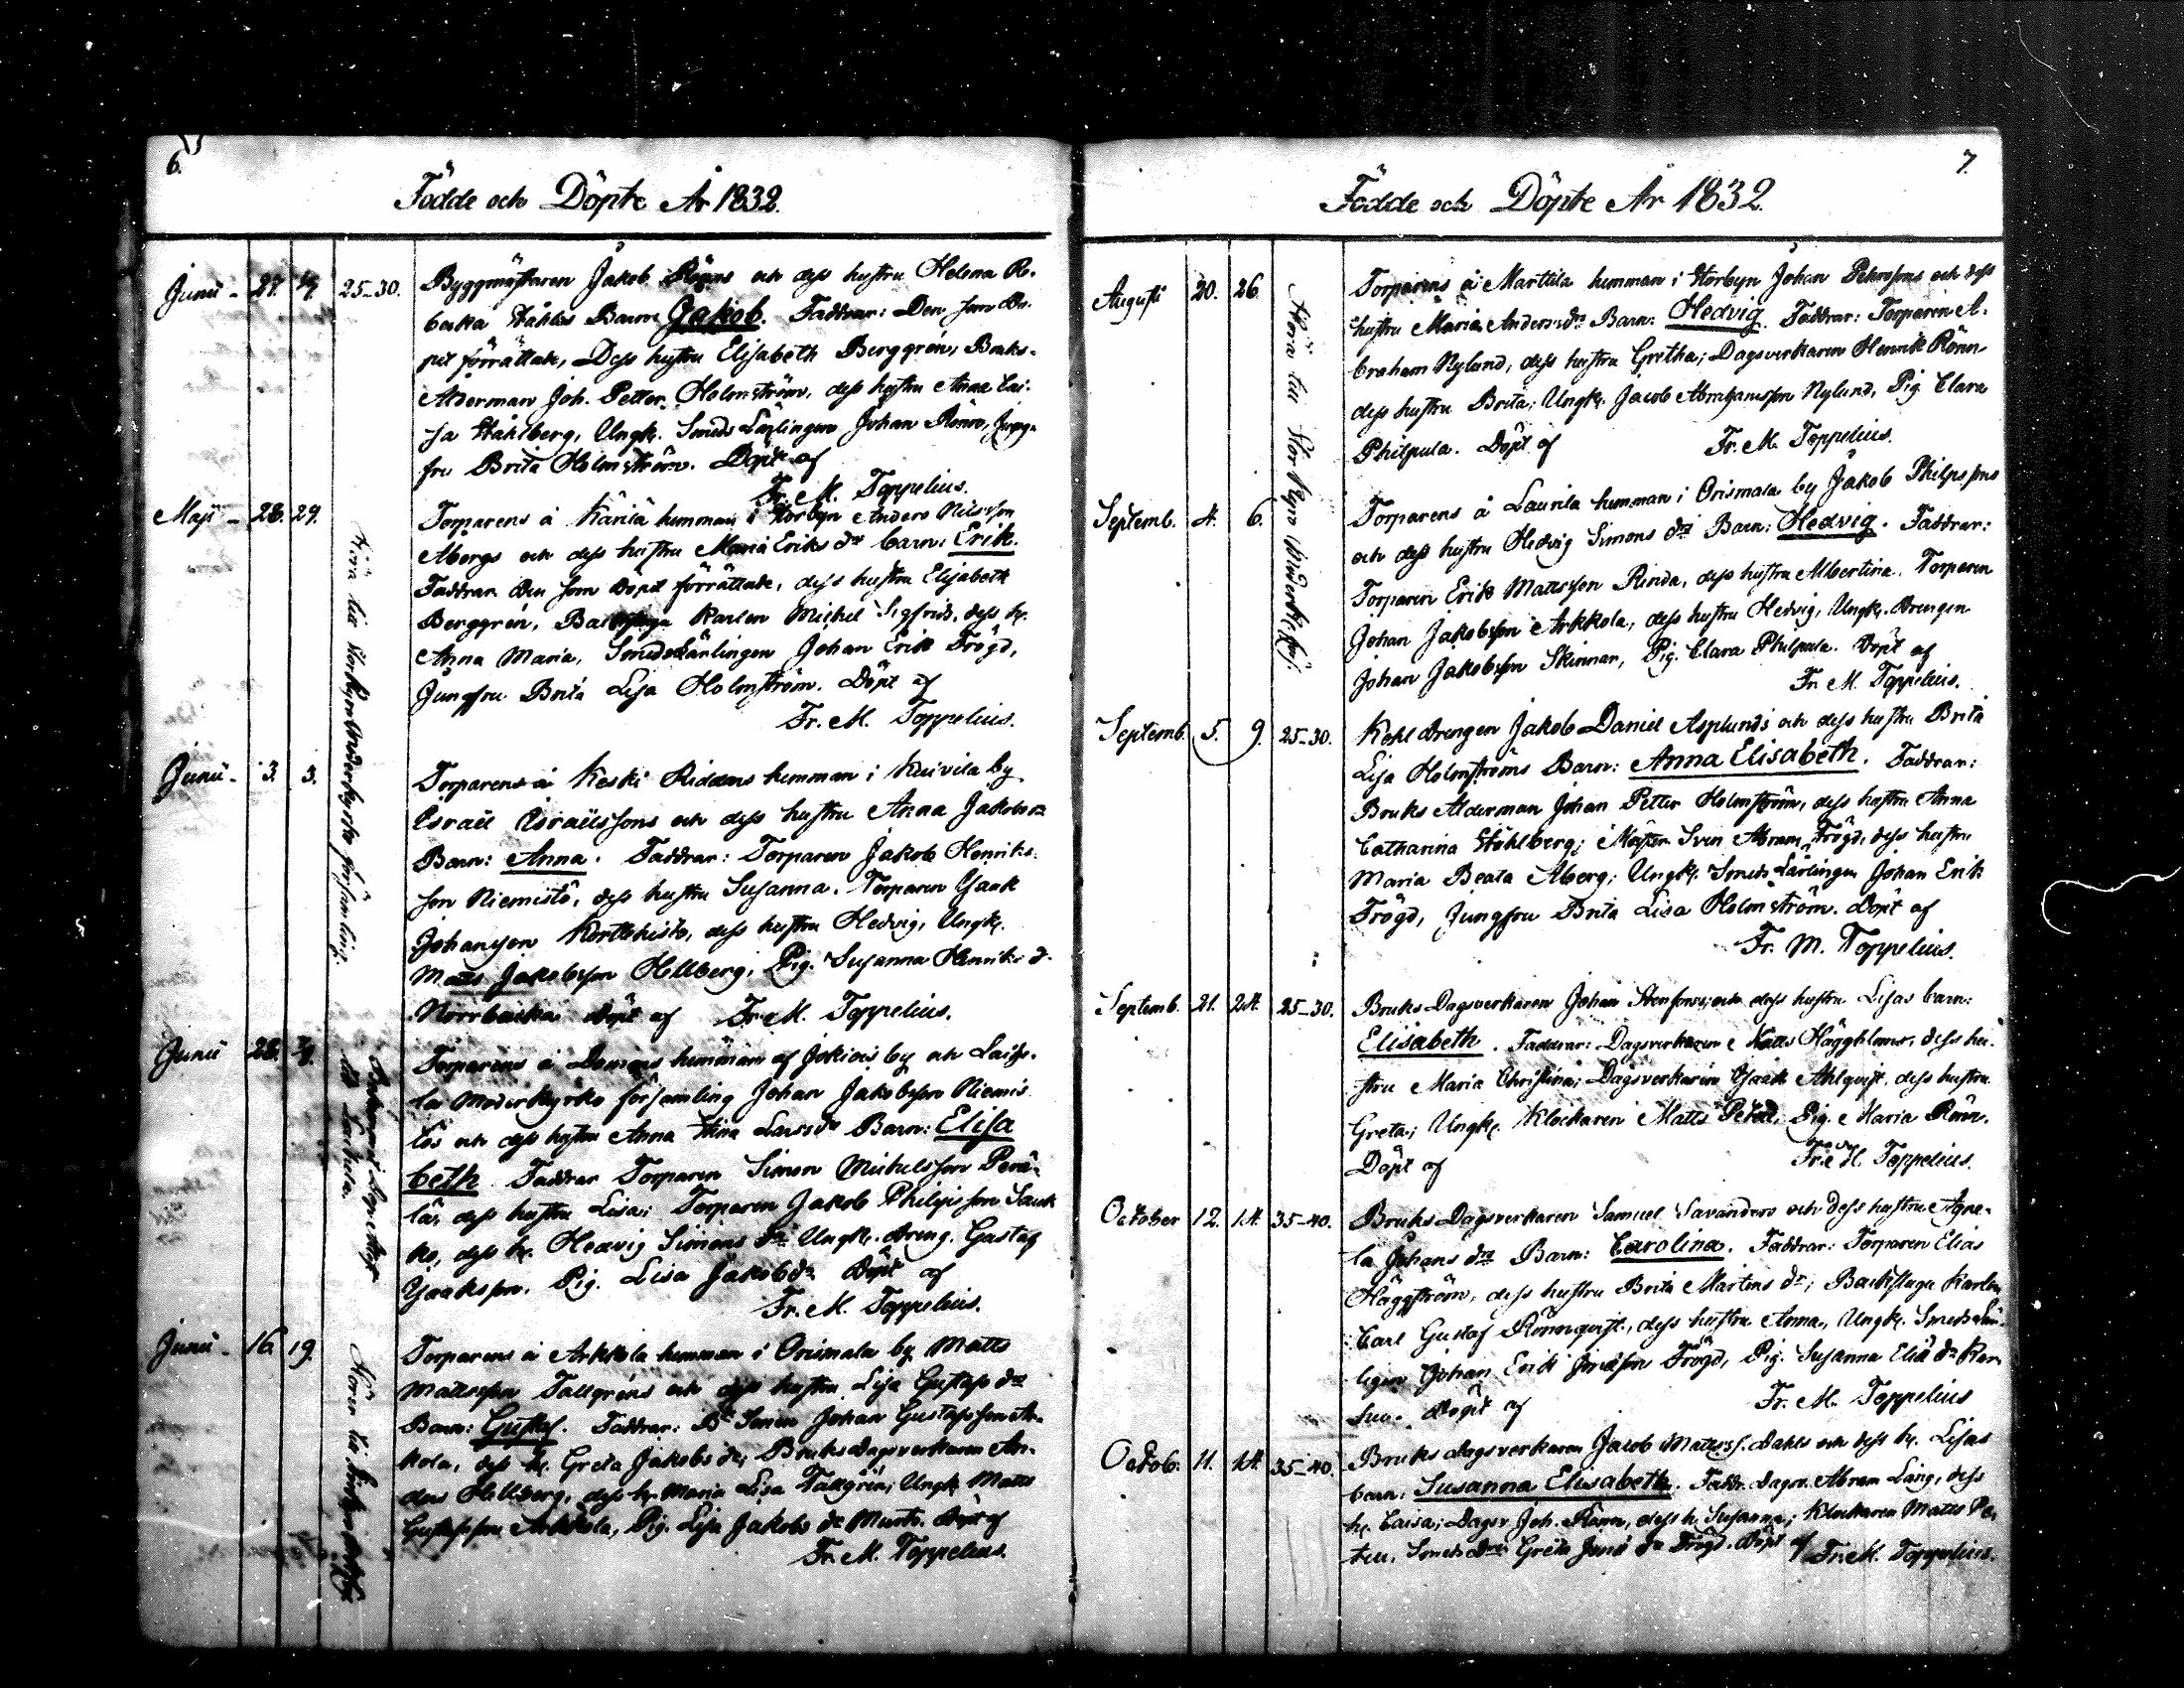 6.
Födde och Döpte År 1832.
Junii - 27. 1/7. 25-30. Byggmästaren Jakob Rönns och dess hustru Helena Re-
becka Ståhles Barn: Jakob. Faddrar: Den som Do-
pet förrättade, Dess hustru Elisabeth Berggren, Bruks-
Ålderman Joh. Petter Holmström, dess hustru Anna Cai-
sa Ståhlberg, Ungk. Smeds Lärlingen Johan Rönn, Jung-
fru Brita Holmström. Döpt af
Fr. M. Toppelius.
Maji - 28. 29. Torparens å Kärilä hemman i Storbyn Anders Nilsson
Åbergs och dess hustru Maria Eriks dr barn: Erik.
Faddrar Den som Döpet förrättade, dess hustru Elisabeth
Berggrén, Backstugu Karlen Michel Sigfrids, dess h.
Anna Maria, Smeds Lärlingen Johan Erik Frögd,
Jungfru Brita Lisa Holmström. Döpt af
Fr. M. Toppelius.
Höra till Storkyro Moderkyrko församling.
Junii - 3. 3. Torparens å Keski hemman i Kuivila by
Israel Israelssons och dess hustru Anna Jakobs dr
Barn: Anna. Faddrar: Torparen Jakob Henriks-
son Niemistö, dess hustru Susanna. Torparen Isaak
Johansson dess hustru Hedvig, Ungk.
Matts Jakobsson Hellberg, Pig. Susanna Henriks d.
Norrbacka Döpt af Fr. M. Toppelius.
Junii 28. Torparens å hemman af Jokois by och Laihe-
la Moderkyrko församling Johan Jakobsson Niemis-
tös och dess hustru Anna Stina Lars dr Barn: Elisa
beth. Faddrar Torparen Simon Michelsson Perä-
lä, dess hustru Lisa; Torparen Jakob Philipsson
dess h. Hedvig Simons dr Ungk. dreng. Gustaf
Isaksson. Pig. Lisa Jakobs dr Döpt af
Fr. M. Toppelius.
till Laihela.
Junii - 16. 19. Torparens å Arkkola hemman i Orismala by Matts
Mattsson Tallgréns och dess hustru Lisa Gustafs dr
Barn: Gustaf. Faddrar: Be Sonen Johan Gustafsson Ar-
kola, dess h. Greta Jakobs dr, Bruks Dagsverkaren An-
ders Hellberg, dess h. Maria Lisa Tallgrén; Ungk. Matts
Gustafsson Arkkola, Pig. Lisa Jakobs dr Murto. Döpt af
Fr. M. Toppelius.
7.
Födde och Döpte År 1832.
Augusti 20. 26. Torparens å Marttila hemman i Storbyn Johan Petterssons och dess
hustru Maria Anders dr Barn: Hedvig. Faddrar: Torparen A-
braham Nylund, dess hustru Gretha; Dagsverkaren Henrik Rönn,
dess hustru Brita; Ungk. Jacob Abrahamsson Nylund, Pig. Clara
Philpula. Döpt af Fr. M. Toppelius.
Höra till Stor Kyro Moderk. förs.
Septemb. 4. 6. Torparens å Laurila hemman i Orismala by Jakob Philpssons
och dess hustru Hedvig Simons dr Barn: Hedvig. Faddrar:
Torparen Erik Mattsson Rinda, dess hustru Albertina. Torparen
Johan Jakobsson Arkkola, dess hustru Hedvig, Ungk. drengen
Johan Jakobsson Skinnar, Pig. Clara Philpula. Döpt af
Fr. M. Toppelius.
Septemb. 5. 9. 25-30. Kohl drengen Jakob Daniel Asplunds och dess hustru Brita
Lisa Holmströms Barn: Anna Elisabeth. Faddrar:
Bruks Ålderman Johan Petter Holmström, dess hustru Anna
Catharina Ståhlberg; Mäster Sven Abram Frögd, dess hustru
Maria Beata Åberg; Ungk. Smeds Lärlingen Johan Erik
Frögd, Jungfru Brita Lisa Holmström. Döpt af
Fr. M. Toppelius.
Septemb. 21. 24. 25-30. Bruks Dagsverkaren Johan Stenfors, och dess hustru Lisas barn:
Elisabeth. Faddrar: Dagsverkaren Matts Häggblom, dess hu-
stru Maria Christina; Dagsverkaren Isaak Ahlqvist, dess hustru
Greta; Ungk. Klockaren Matts Pig. Maria Rönn.
Döpt af Fr. M. Toppelius.
October 12. 14. 35-40. Bruks Dagsverkaren Samuel Savanders och dess hustru Agne-
ta Johans dr Barn: Carolina. Faddrar: Torparen Elias
Häggström, dess hustru Brita Mårtens dr; Backstugu Karlen
Carl Gustaf Rönnqvist, dess hustru Anna, Ungk. Smeds Lär-
lingen Johan Erik Frögd, Pig. Susanna Elias dr
Döpt af Fr. M. Toppelius
Octob: 11. 14. 35-40. Bruks dagsverkaren Jacob Mattss. Dahls och dess h. Lisas
barn: Susanna Elisabeth. Faddr. dagsv. Abram Lång, dess
h. Caisa; Dagsv. Joh. Rönn, dess h. Susanna; Klockaren Matts
Smeds dr Greta dr Frögd. Döpt af Fr. M. Toppelius.